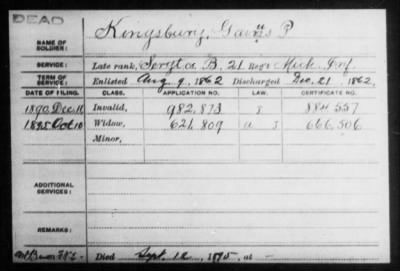 DEAD
NAME OF SOLDIER: Kingsbury, Gaius P
SERVICE: Late rank, Sergt Co B, 21 Reg't Mich. Inf
TERM OF SERVICE: Enlisted Aug 9, 1862 Discharged Dec. 21, 1862,
DATE OF FILING. CLASS. APPLICATION NO. LAW. CERTIFICATE NO.
1890 Dec. 16 Invalid, 982,873 884557
1895 Oct 10 Widow, 621,809 666,506
Minor,
ADDITIONAL SERVICES:
REMARKS:
Died Sept. 12, 1895, at -